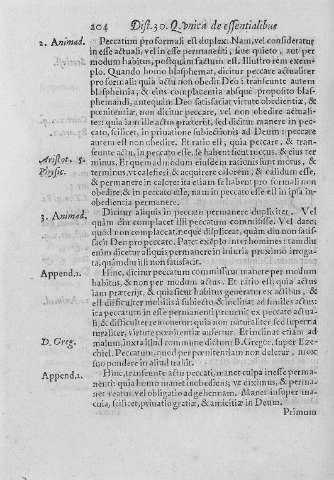 204 Dist. 30. Q. unica de essentialibus
2. Animad. Peccatum pro formali est duplex. Nam, vel consideratur
in esse actuali, vel in esse permanenti, sine quieto, aut per
modum habitus, postquam factum est. Illustro rem exem-
plo. Quando homo blasphemat, dicitur peccare actualiter
pro formali: quia actu non obedit Deo: transeunte autem
blasphemia, & eius complacentia absque proposito blas-
phemandi, antequam Deo satisfaciat virtute obedientiæ, &
pœnitentiæ, non dicitur peccare, vel non obedire actuali-
ter: quia iam ille actus præteriit, sed dicitur manere in pec-
cato, scilicet, in privatione subiectionis ad Deum: peccare
autem est non obedire. Et ratio est, quia peccare, & trans-
eunte actu, in peccato esse, se habent sicut motus, & eius ter
Aristot. 5. minus. Et quemadmodum eiusdem rationis sunt motus, &
Physic. terminus, vt calefieri & acquirere calorem, & calidum esse,
& permanere in calore: ita etiam se habent pro formali non
obedire, & in peccato esse, nam in peccato esse est in ipsa in-
obedientia permanere.
3. Animad. Dicitur aliquis in peccato permanere dupliciter. Vel
quia cum placet illi peccatum commisisse. Vel dato;
quod non complaceat, neque displiceat, quàm diu non satis-
facit Deo pro peccato. Patet exemplo inter homines: tamdiu
enim dicetur aliquis permanere in iniuria proximo irroga-
ta, quàmdiu illi non satisfacit.
Append. 1. Hinc, dicitur peccatum commissum manere per modum
habitus, & non per modum actus. Et ratio est: quia actus
iam præteriit, & quasi est habitus generatus ex actibus, &
est difficulter mobilis à subiecto & inclinat ad similes actus:
ita peccatum in esse permanenti prouenit ex peccato actua-
li, & difficulter remouetur: quia non naturaliter sed superna
turaliter, virtute pœnitentiæ aufertur. Et inclinat etiam ad
D. Greg. malum, iuxta illud commune dictum B. Gregor. super Eze-
chiel. Peccatum, quod per pœnitentiam non deletur, mox
suo pondere in aliud trahit.
Append. 2. Hinc, transeunte actu peccati, manet culpa in esse perma-
nenti: quia homo manet inobediens, vt diximus, & perma-
net reatus vel obligatio ad gehennam. Manet insuper ma-
cula, scilicet, priuatio gratiæ, & amicitiæ in Deum.
Primum